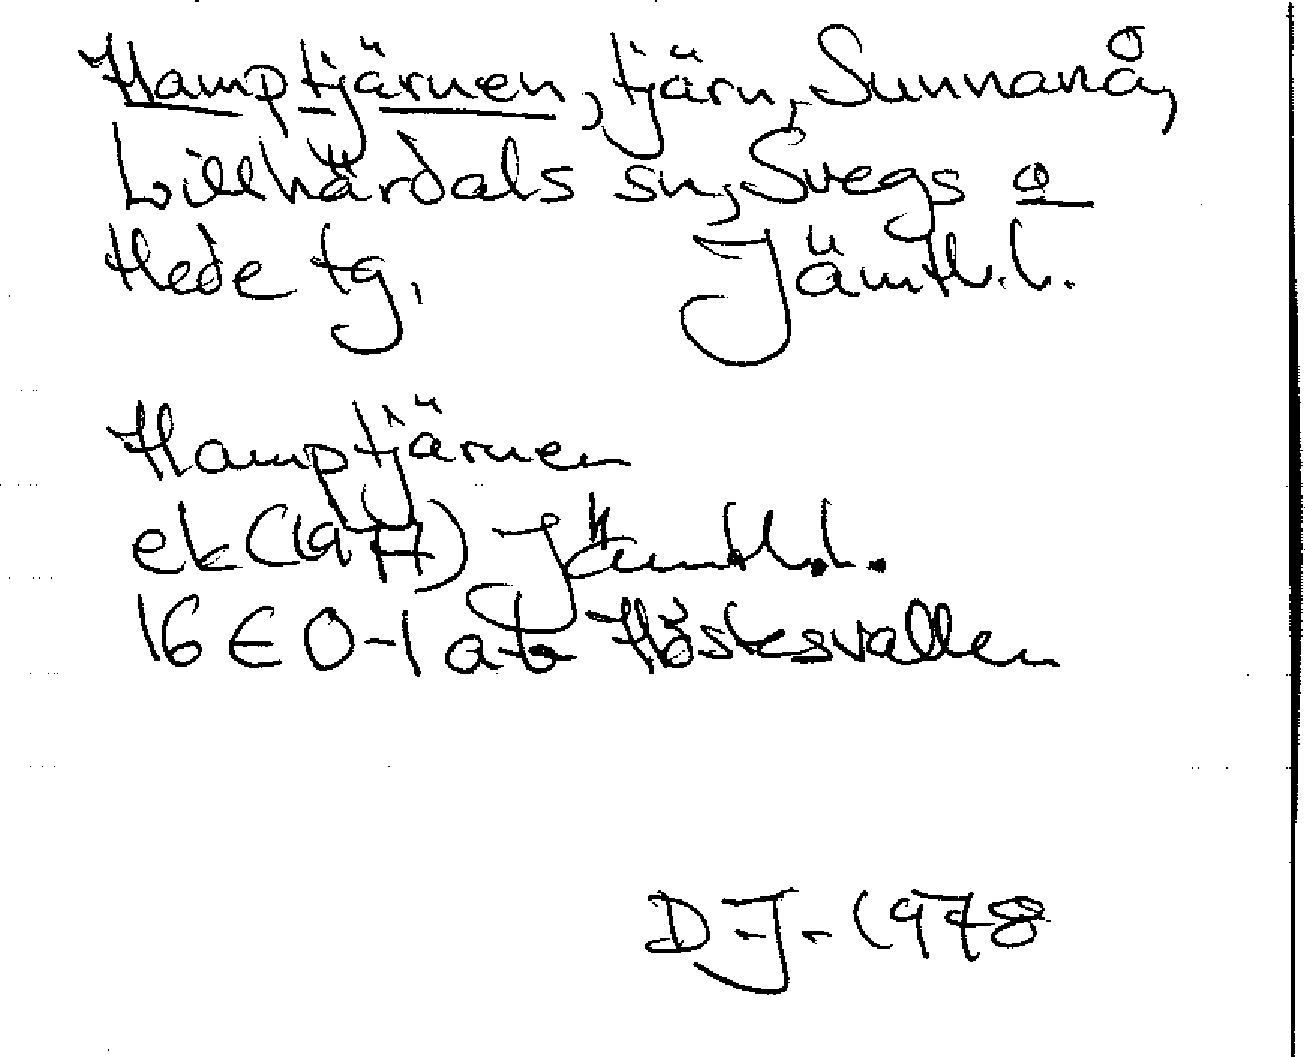 Hamptjärnen, tjärn, Sunnanå,
Lillhärdals sn, Svegs o
Hede tg. Jämtl. l.
Hamptjärnen
ek (1971) Jämtl. l.
16E 0-1 a-b Höstesvallen
D.J. 1978